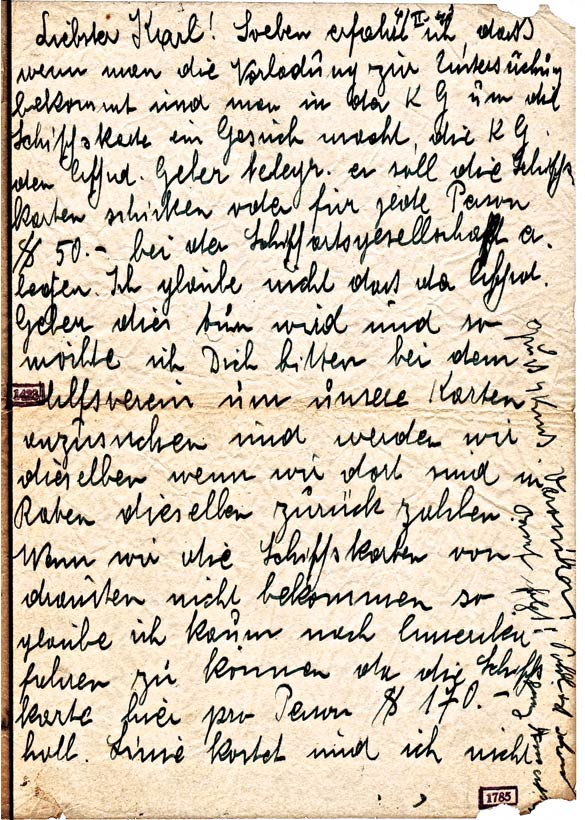 4/II. 40
Liebster Karl! Soeben erfahre ich dass
wenn man die Vorladung zur Untersuchung
bekommt und man in der K G um die
Schiffskarte ein Gesuch macht, die K G.
den Affid. Geber telegr. er soll die Schiffs-
karten schicken oder für jede Person
$ 50.- bei der Schiffartsgesellschaft e.
legen. Ich glaube nicht dass da Affid.
Geber dies tun wird und so
möchte ich Dich bitten bei dem
Hilfsverein um unsere Karten
anzusuchen und werden wir
dieselben wenn wir dort sind in
Raten dieselben zurück zahlen.
Wenn wir die Schiffskarten von
draussen nicht bekommen so
glaube ich kaum nach Amerika
fahren zu können da die Schiffs
karte hier pro Person $ 170.-
holl. Linie kostet und ich nicht
1423
1785